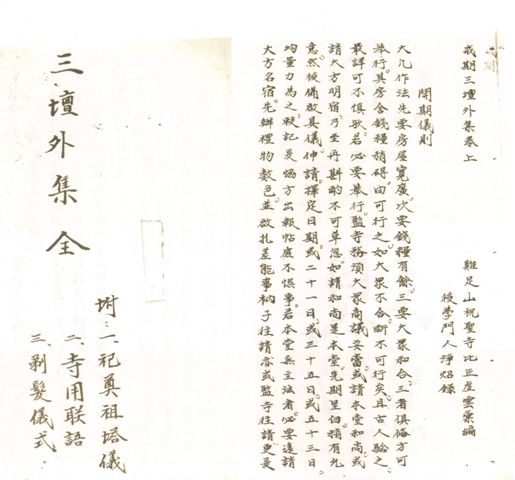 戒期三壇外集卷上
雞足山祝聖寺比丘虛雲彙編
後學門人淨焰錄
開期儀則
大凡作法先要房屋寬廣次要錢糧有餘三要大眾和合三者俱備方可
舉行其房舍錢糧稍碍由可行之如大眾不合斷不可行矣且古人驗之
最詳可不慎歟若必要舉行監寺務須大眾商議妥當或請本堂和尚或
請大方明宿乃至再斟酌不可草忽如請和尚是本堂先期呈白稍有允
意然後備啟具儀伸請擇定日期或二十一日或三十五日或五十三日
均量力為之記是方出報帖庶不悞事若本堂無主法者必要遠請
大方名宿先辦禮物數色並啟扎差能事衲子往請或監寺往請更妥
三壇外集 全
坿：一、祀奠祖塔儀
二、寺用联語
三、剃髮儀式